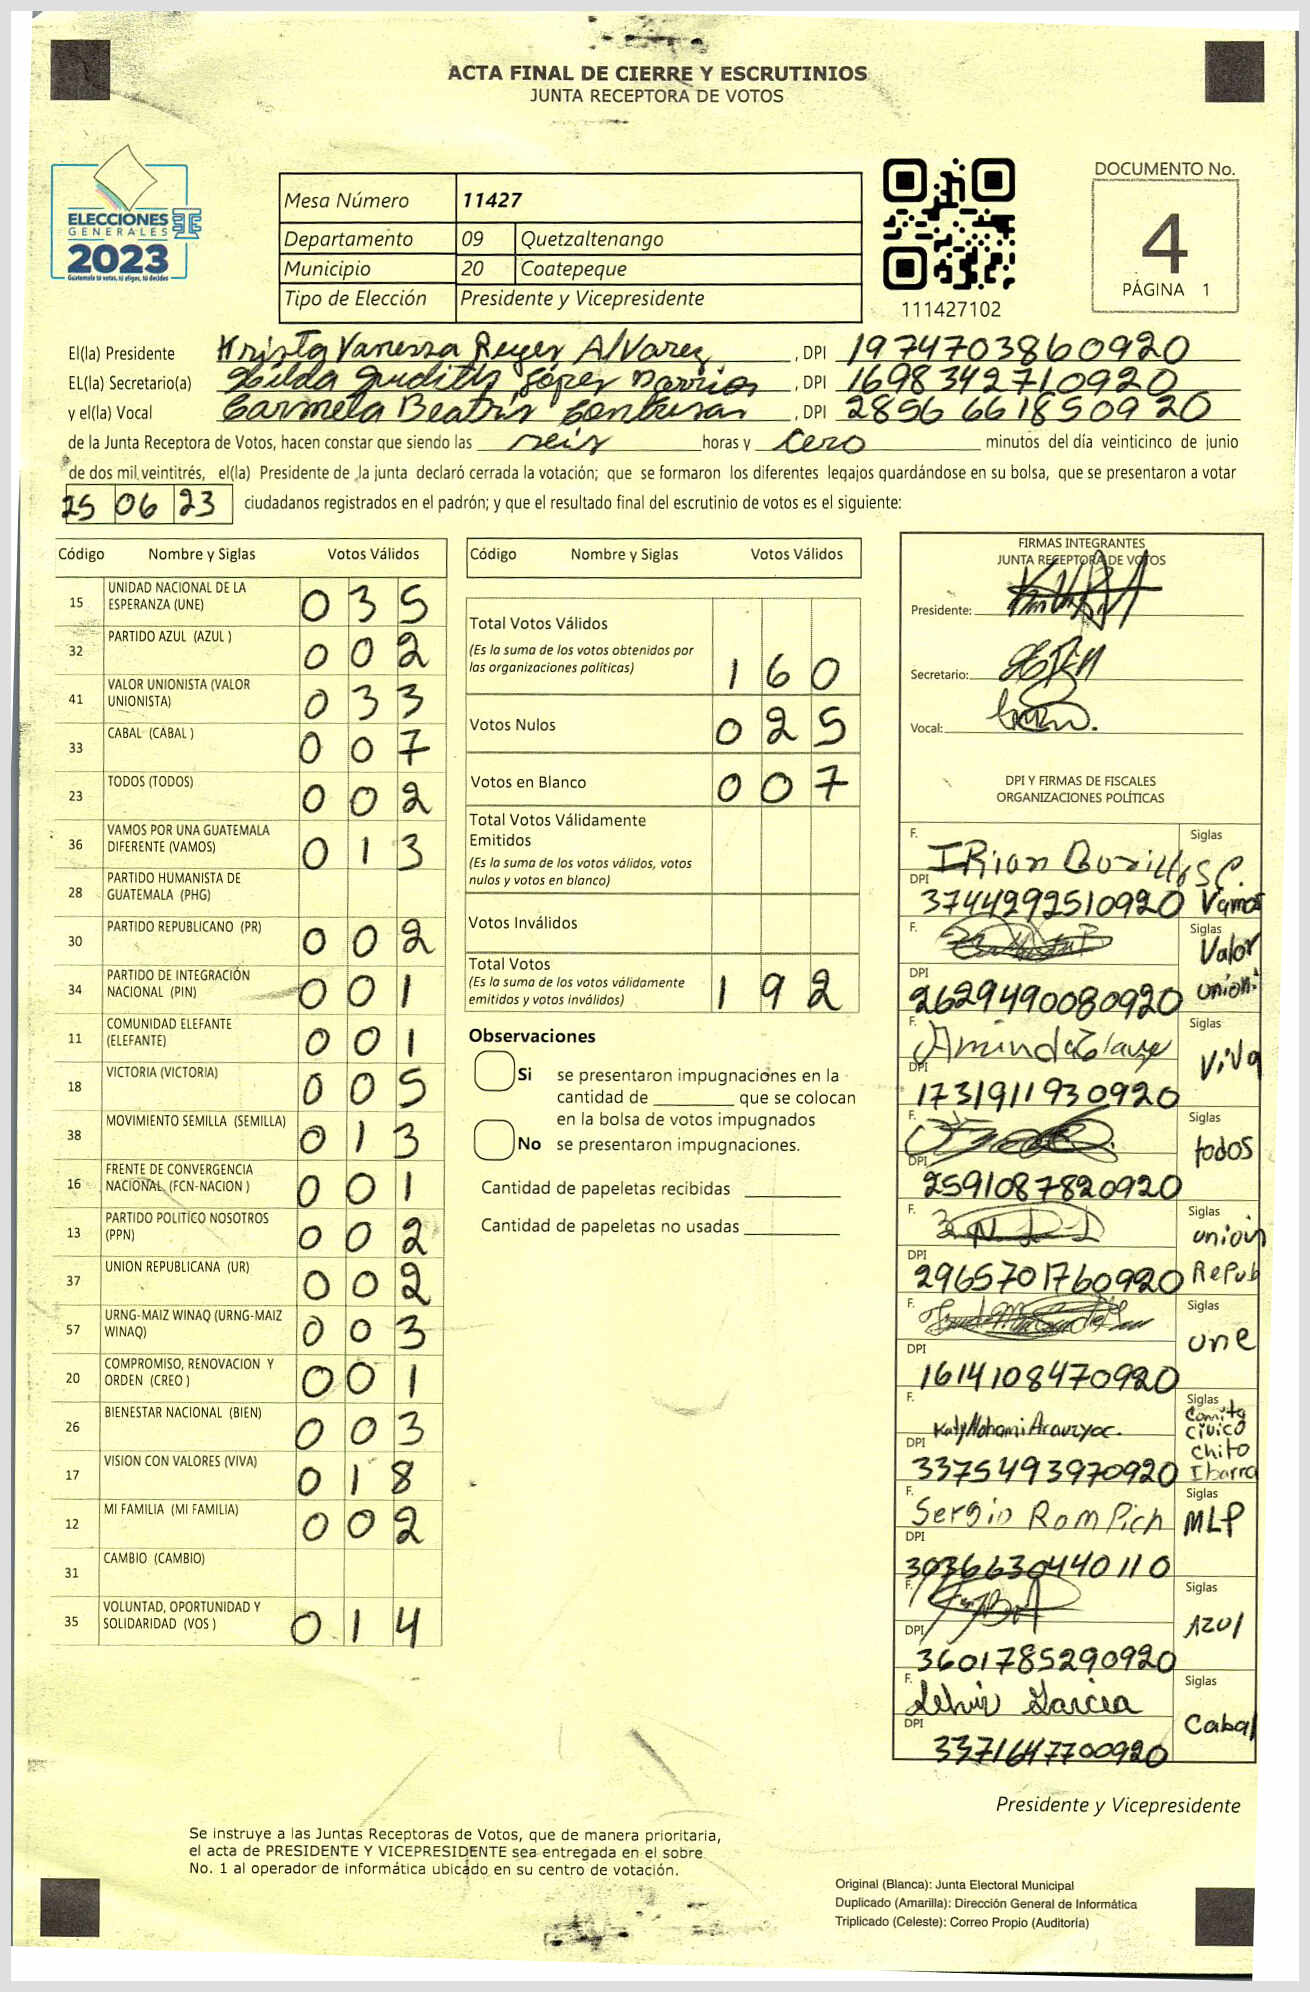 ACTA FINAL DE CIERRE Y ESCRUTINIOS
JUNTA RECEPTORA DE VOTOS
ELECCIONES
GENERALES
2023
Guatemala tú votas, tú eliges, tú decides
Mesa Número 11427
Departamento 09 Quetzaltenango
Municipio 20 Coatepeque
Tipo de Elección Presidente y Vicepresidente
111427102
DOCUMENTO No.
4
PÁGINA 1
El(la) Presidente Krista Vanessa Reyes Alvarez, DPI 1974703860920
EL(la) Secretario(a) Hilda Judith López Barrios, DPI 1698342710920
y el(la) Vocal Carmela Beatriz, DPI 2856661850920
de la Junta Receptora de Votos, hacen constar que siendo las seis horas y cero minutos del día veinticinco de junio
de dos mil veintitrés, el(la) Presidente de la junta declaró cerrada la votación; que se formaron los diferentes legajos quardándose en su bolsa, que se presentaron a votar
25 06 23 ciudadanos registrados en el padrón; y que el resultado final del escrutinio de votos es el siguiente:
Código Nombre y Siglas Votos Válidos
15 UNIDAD NACIONAL DE LA ESPERANZA (UNE) 035
32 PARTIDO AZUL (AZUL ) 002
41 VALOR UNIONISTA (VALOR UNIONISTA) 033
33 CABAL (CABAL ) 007
23 TODOS (TODOS) 002
36 VAMOS POR UNA GUATEMALA DIFERENTE (VAMOS) 013
28 PARTIDO HUMANISTA DE GUATEMALA (PHG)
30 PARTIDO REPUBLICANO (PR) 002
34 PARTIDO DE INTEGRACIÓN NACIONAL (PIN) 001
11 COMUNIDAD ELEFANTE (ELEFANTE) 001
18 VICTORIA (VICTORIA) 005
38 MOVIMIENTO SEMILLA (SEMILLA) 013
16 FRENTE DE CONVERGENCIA NACIONAL (FCN-NACION ) 001
13 PARTIDO POLITICO NOSOTROS (PPN) 002
37 UNION REPUBLICANA (UR) 002
57 URNG-MAIZ WINAQ (URNG-MAIZ WINAQ) 003
20 COMPROMISO, RENOVACION Y ORDEN (CREO ) 001
26 BIENESTAR NACIONAL (BIEN) 003
17 VISION CON VALORES (VIVA) 018
12 MI FAMILIA (MI FAMILIA) 002
31 CAMBIO (CAMBIO)
35 VOLUNTAD, OPORTUNIDAD Y SOLIDARIDAD (VOS ) 014
Código Nombre y Siglas Votos Válidos
Total Votos Válidos
(Es la suma de los votos obtenidos por
las organizaciones políticas) 160
Votos Nulos 025
Votos en Blanco 007
Total Votos Válidamente
Emitidos
(Es la suma de los votos válidos, votos
nulos y votos en blanco)
Votos Inválidos
Total Votos
(Es la suma de los votos válidamente
emitidos y votos inválidos) 192
Observaciones
Si se presentaron impugnaciones en la
cantidad de ________ que se colocan
en la bolsa de votos impugnados
No se presentaron impugnaciones.
Cantidad de papeletas recibidas
Cantidad de papeletas no usadas
FIRMAS INTEGRANTES
JUNTA RECEPTORA DE VOTOS
Presidente:
Secretario:
Vocal:
DPI Y FIRMAS DE FISCALES
ORGANIZACIONES POLÍTICAS
F. Siglas
DPI 3744292510920 Vamos
F. Siglas Valor
DPI 2629490080920 unioni
F. Siglas Viva
DPI 1731911930920
F. Siglas todos
DPI 2591087820920
F. Siglas union
DPI 2965701760920 Repub
F. Siglas une
DPI 1614108470920
F. Siglas Comite Civico Chito Ibarra
DPI 3375493970920
F. Sergio Rom Pich Siglas MLP
DPI 3036630440110
F. Siglas Azul
DPI 3601785290920
F. Garcia Siglas Cabal
DPI 3371647700920
Presidente y Vicepresidente
Se instruye a las Juntas Receptoras de Votos, que de manera prioritaria,
el acta de PRESIDENTE Y VICEPRESIDENTE sea entregada en el sobre
No. 1 al operador de informática ubicado en su centro de votación.
Original (Blanca): Junta Electoral Municipal
Duplicado (Amarilla): Dirección General de Informática
Triplicado (Celeste): Correo Propio (Auditoría)